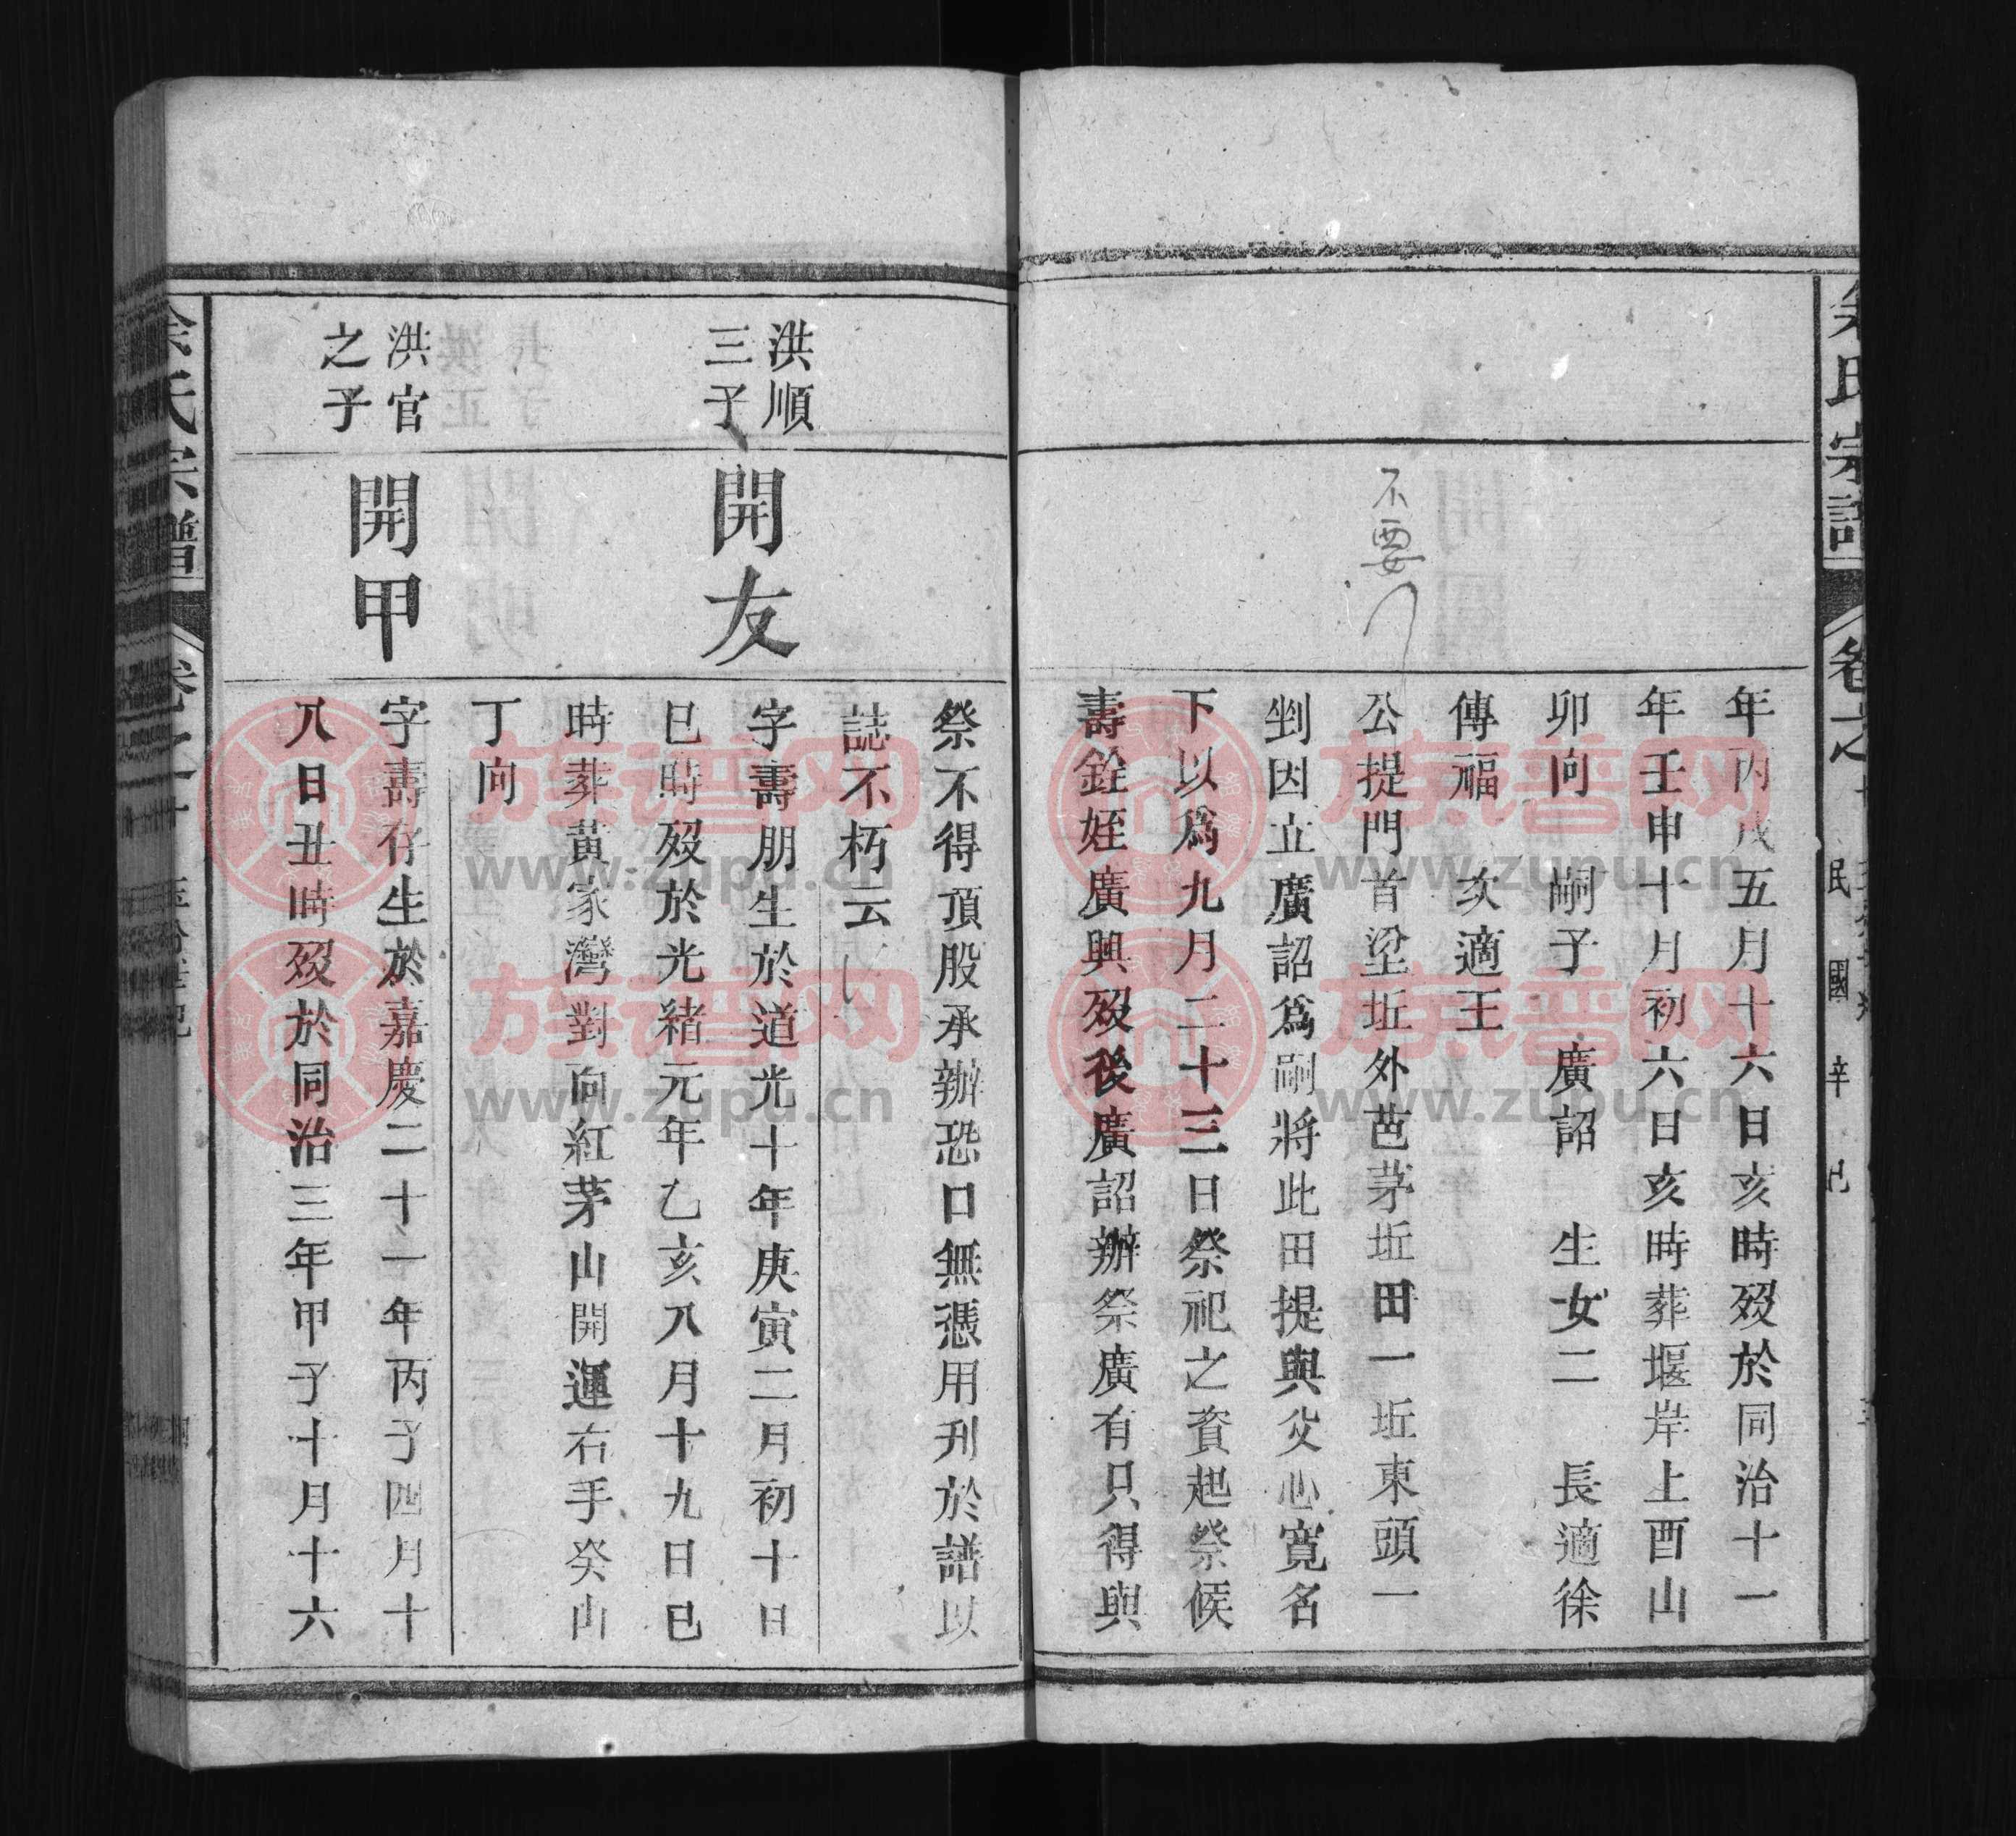 氏宗譜
民國辛巳
年丙戌五月十六日亥時歿於同治十一
年壬申十月初六日亥時葬堰岸上酉山
卯向 嗣子 廣詔 生女二 長適徐
傳福 次適王
公提門首坌坵外芭茅坵田一坵東頭一
剉因立廣詔為嗣將此田提與父心寬名
下以為九月二十三日祭祀之資起祭候
壽銓姪廣興歿後廣詔辦祭廣有只得與
不要
祭不得頂股承辦恐口無憑用刋於譜以
誌不朽云
洪順
三子
開友
字壽朋生於道光十年庚寅二月初十日
巳時歿於光緒元年乙亥八月十九日巳
時葬黃家灣對向紅茅山開運右手癸山
丁向
洪官
之子
開甲
字壽存生於嘉慶二十一年丙子四月十
八日丑時歿於同治三年甲子十月十六
氏宗譜
族谱网
www.zupu.cn
族谱网
www.zupu.cn
族谱网
www.zupu.cn
族谱网
www.zupu.cn